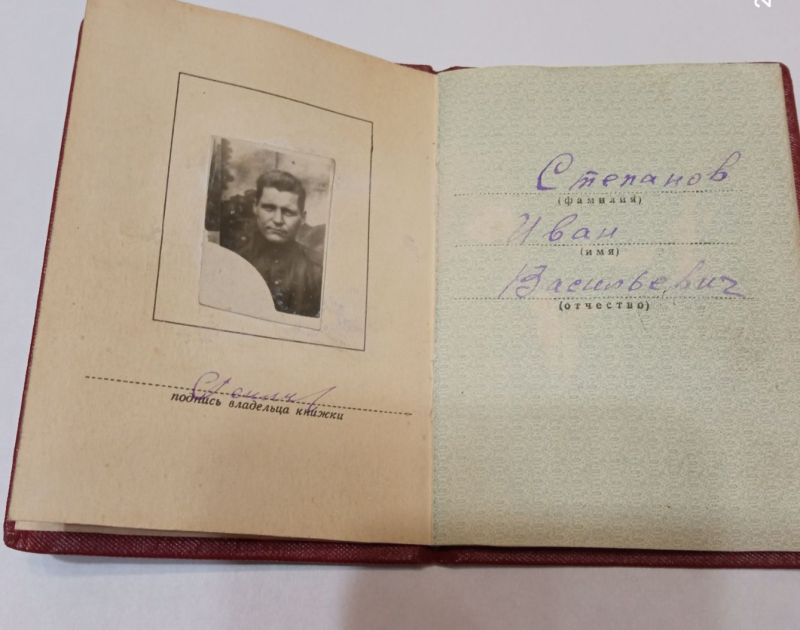 подпись владельца книжки
Степанов
(фамилия)
Иван
(имя)
Васильевич
(отчество)